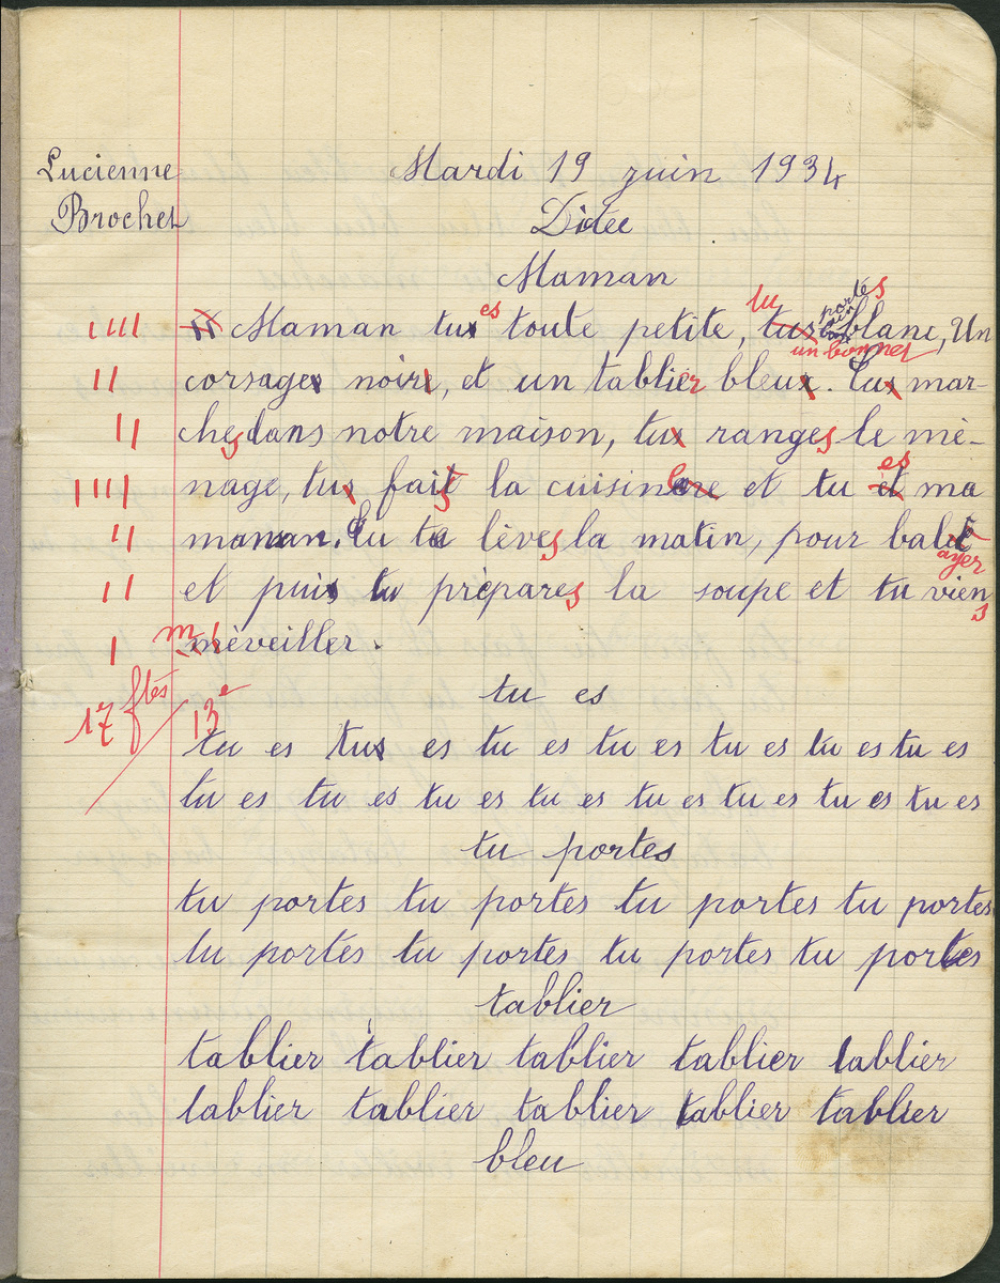 Lucienne
Brochet
Mardi 19 juin 1934
Dictée
Maman
Maman tux es toute petite, tu portes un bonnet blanc, Un
corsage noir, et un tablier bleu. Tu mar-
ches dans notre maison, tu ranges le mé-
nage, tu fais la cuisine et tu es ma
maman. Tu te lèves la matin, pour balayer
et puis tu prépares la soupe et tu viens
m'éveiller.
17 ftes / 13e
tu es
tu es tu es tu es tu es tu es tu es tu es
tu es tu es tu es tu es tu es tu es tu es tu es
tu portes
tu portes tu portes tu portes tu portes
tu portes tu portes tu portes tu portes
tablier
tablier tablier tablier tablier tablier
tablier tablier tablier tablier tablier
bleu